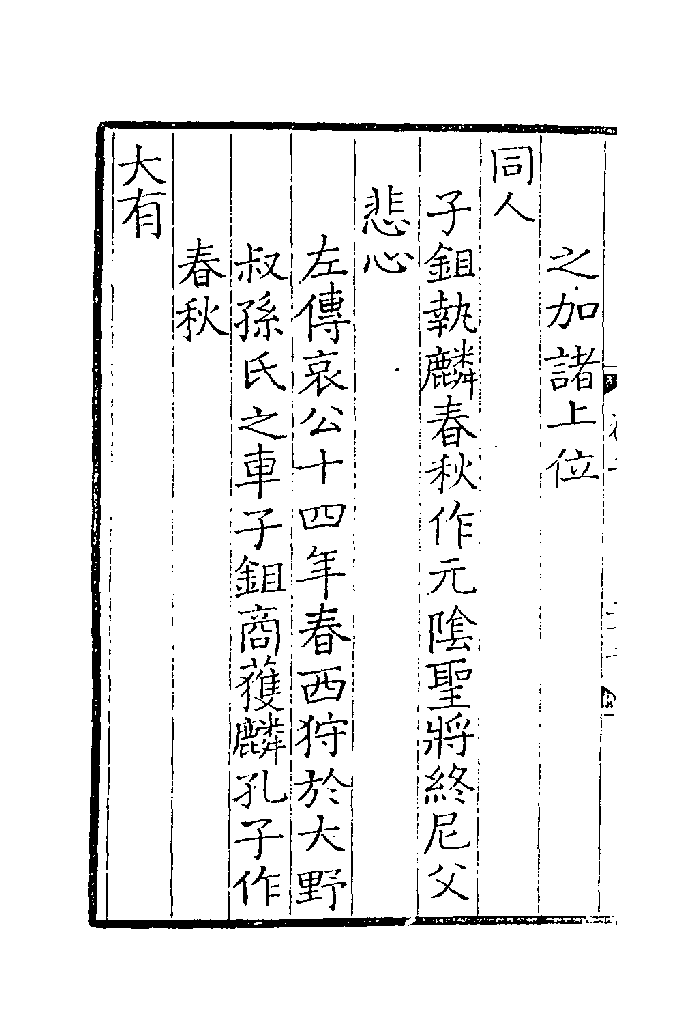 之加諸上位
同人
子鉏執麟春秋作元陰聖將終尼父
悲心
左傳哀公十四年春西狩於大野
叔孫氏之車子鉏商獲麟孔子作
春秋
大有